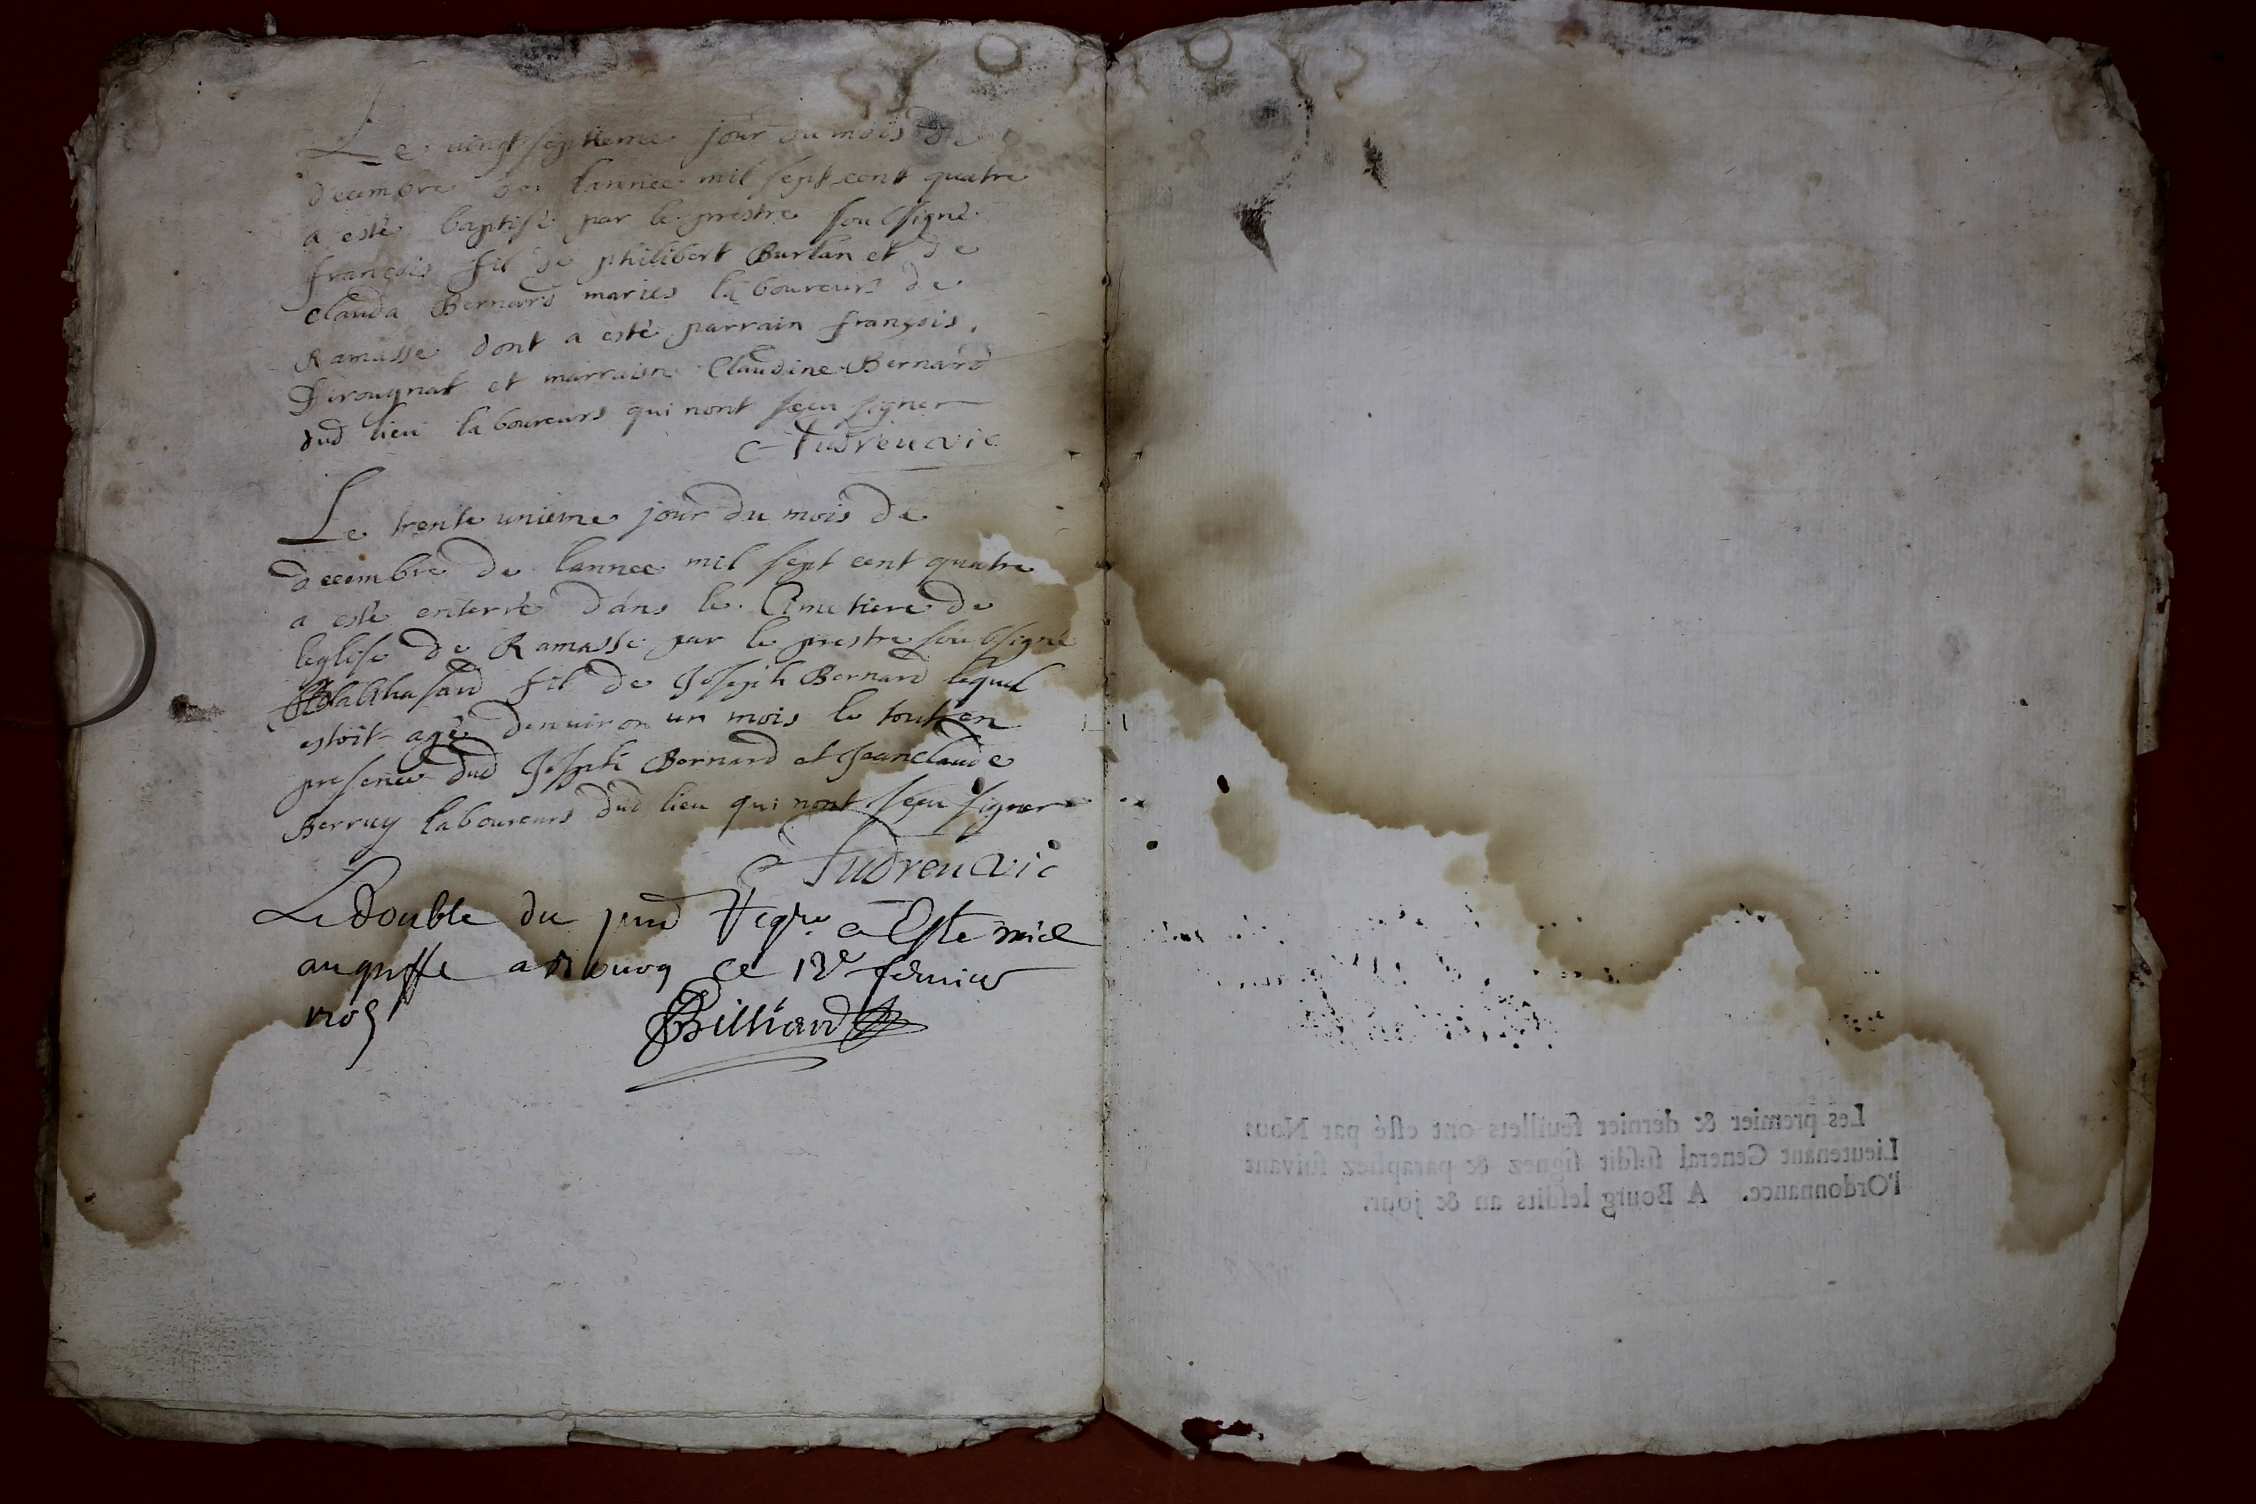 Le vingt septieme jour du mois de
decembre de lannee mil sept cent quatre
a esté baptisé par le prestre soubsigné
françois fil de philibert Burlan et de
clauda Bernard mariés laboureurs de
Ramasse dont a esté parrain françois
et marraine Claudine Bernard
dud lieu laboureurs qui nont sçeu signer
Le trente unieme jour du mois de
decembre de lannee mil sept cent quatre
a esté enterré dans le Cimetiere de
leglise de Ramasse par le prestre soubsigné
Balthasard fil de Joseph Bernard lequel
estoit agé denuiron un mois le tout en
presence dud Joseph Bernard et Jeanclaude
Berruy laboureurs dud lieu qui nont sçeu signer
Le double du pnt Regre a Esté mis
au greffe a Bourg ce 18e feburier
1705
Billiard
Les premier & dernier feuillets ont esté par Nous
Lieutenant General susdit signez & paraphez suivant
l'Ordonnance. A Bourg lesdits an & jour.